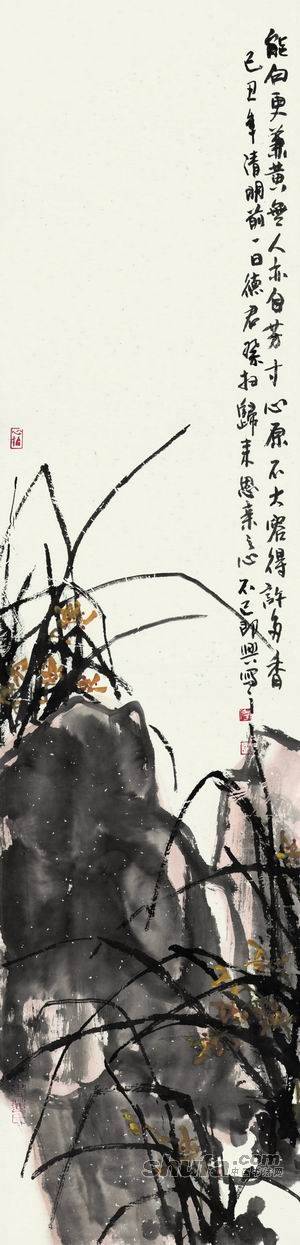 能白更兼黄無人亦自芳寸心原不大容得許多香
己丑年清明前一日德君祭扫歸来思亲之心不已即興寫之
shufa.com